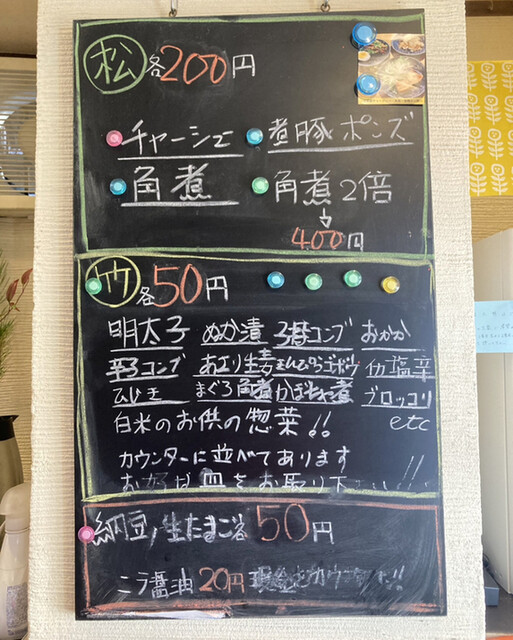 松 各200円
チャーシュー 煮豚ポンズ
角煮 角煮2倍
↓
400円
竹 各50円
明太子 ぬか漬 子持コンブ おかか
辛子コンブ きんぴらゴボウ イカ塩辛
ひじき まぐろ角煮 かぼちゃ煮 ブロッコリ
白米のお供の惣菜!! etc
カウンターに並べてあります
お好きな皿をお取り下さい!!
納豆,生たまご各50円
ニラ醤油20円